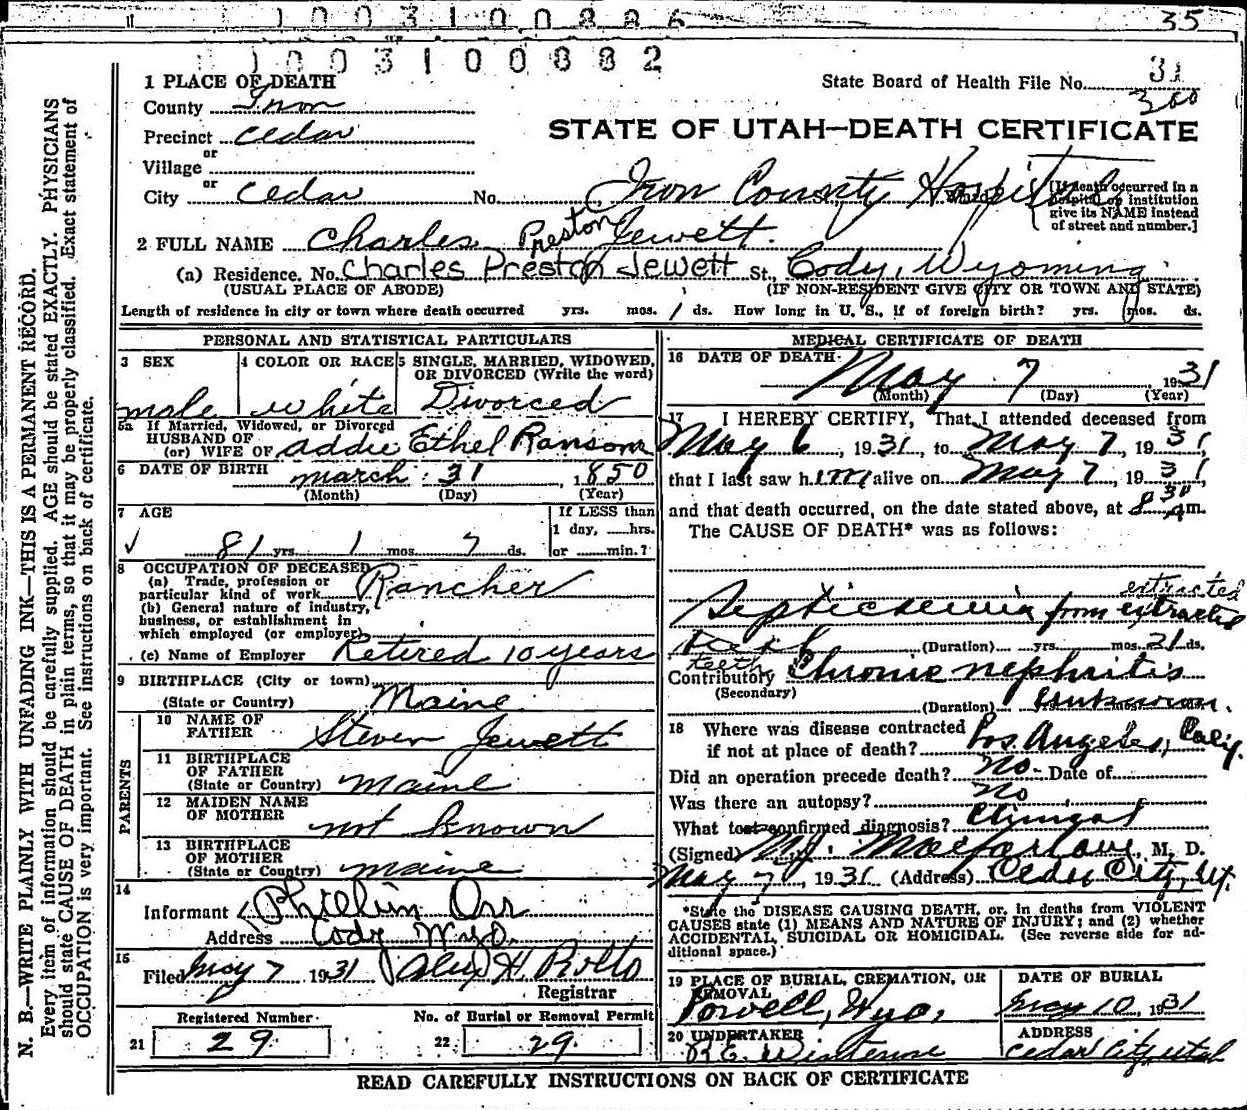 1003100886 35
1003100882
1 PLACE OF DEATH
State Board of Health File No. 31
300
County Iron
Precinct Cedar
STATE OF UTAH—DEATH CERTIFICATE
or
Village
or
City Cedar No. Iron County Hospital
[If death occurred in a hospital or institution give its NAME instead of street and number.]
2 FULL NAME Charles Preston Jewett.
(a) Residence. No. Charles Preston Jewett St., Cody, Wyoming
(USUAL PLACE OF ABODE) (IF NON-RESIDENT GIVE CITY OR TOWN AND STATE)
Length of residence in city or town where death occurred yrs. mos. 1 ds. How long in U. S., if of foreign birth? yrs. mos. ds.
PERSONAL AND STATISTICAL PARTICULARS
3 SEX 4 COLOR OR RACE 5 SINGLE, MARRIED, WIDOWED, OR DIVORCED (Write the word)
male white Divorced
5a If Married, Widowed, or Divorced
HUSBAND OF
(or) WIFE OF Addie Ethel Ransom
6 DATE OF BIRTH march 31, 1850
(Month) (Day) (Year)
7 AGE If LESS than
1 day, hrs.
81 yrs. 1 mos. 7 ds. or min.?
8 OCCUPATION OF DECEASED
(a) Trade, profession or
particular kind of work Rancher
(b) General nature of industry,
business, or establishment in
which employed (or employer)
(c) Name of Employer Retired 10 years
9 BIRTHPLACE (City or town)
(State or Country) Maine
PARENTS
10 NAME OF
FATHER Steven Jewett
11 BIRTHPLACE
OF FATHER
(State or Country) maine
12 MAIDEN NAME
OF MOTHER not known
13 BIRTHPLACE
OF MOTHER
(State or Country) maine
14
Informant Orr
Address Cody Wyo.
15
Filed May 7 1931 Alex H. Rollo
Registrar
Registered Number No. of Burial or Removal Permit
21 29 22 29
MEDICAL CERTIFICATE OF DEATH
16 DATE OF DEATH May 7, 1931
(Month) (Day) (Year)
17 I HEREBY CERTIFY, That I attended deceased from
May 6, 1931, to May 7, 1931,
that I last saw him alive on May 7, 1931,
and that death occurred, on the date stated above, at 8 30 Am.
The CAUSE OF DEATH* was as follows:
extracted
Septicaemia from extracted
teeth (Duration) yrs. mos. 21 ds.
teeth
Contributory Chronic nephritis
(Secondary)
(Duration) unknown.
18 Where was disease contracted
if not at place of death? Los Angeles, Calif.
Did an operation precede death? No Date of
Was there an autopsy? No
What test confirmed diagnosis? Clinical
(Signed) M.J. Macfarlane, M. D.
May 7, 1931 (Address) Cedar City, Ut.
*State the DISEASE CAUSING DEATH, or, in deaths from VIOLENT
CAUSES state (1) MEANS AND NATURE OF INJURY; and (2) whether
ACCIDENTAL, SUICIDAL OR HOMICIDAL. (See reverse side for ad-
ditional space.)
19 PLACE OF BURIAL, CREMATION, OR REMOVAL DATE OF BURIAL
Powell, Wyo. May 10, 1931
20 UNDERTAKER ADDRESS
Cedar City Utah
READ CAREFULLY INSTRUCTIONS ON BACK OF CERTIFICATE
N. B.—WRITE PLAINLY WITH UNFADING INK—THIS IS A PERMANENT RECORD.
Every item of information should be carefully supplied. AGE should be stated EXACTLY. PHYSICIANS
should state CAUSE OF DEATH in plain terms, so that it may be properly classified. Exact statement of
OCCUPATION is very important. See instructions on back of certificate.